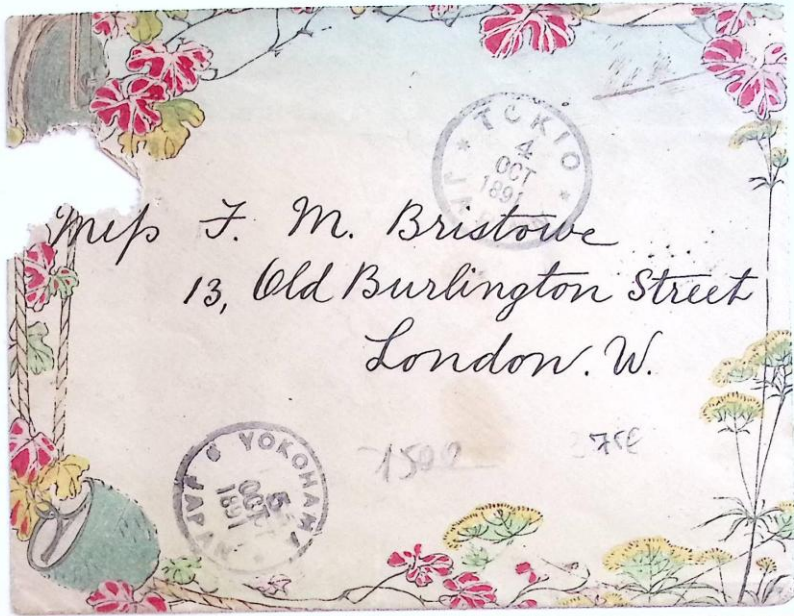 TOKIO
4
OCT
1891
JAPAN
Miss F. M. Bristowe
13, Old Burlington Street
London. W.
YOKOHAMA
5
OCT
1891
JAPAN
1500